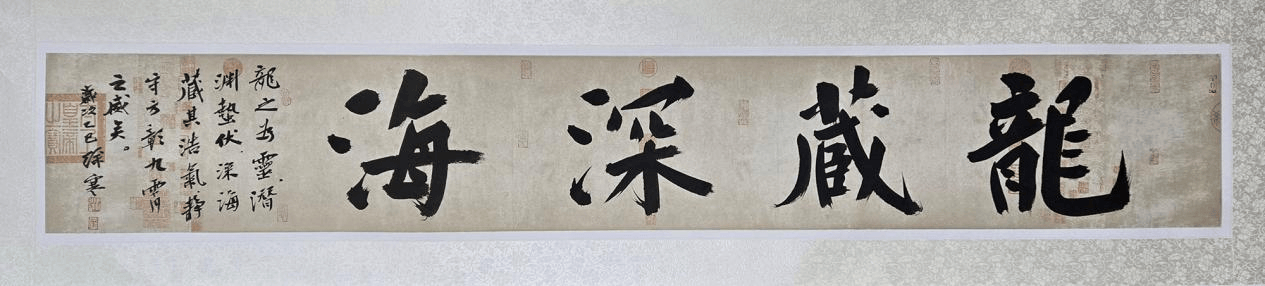 龍藏深海
龍之为靈潛
淵蟄伏深海
藏其浩氣靜
守方彰九霄
之威矣。
歲次乙巳